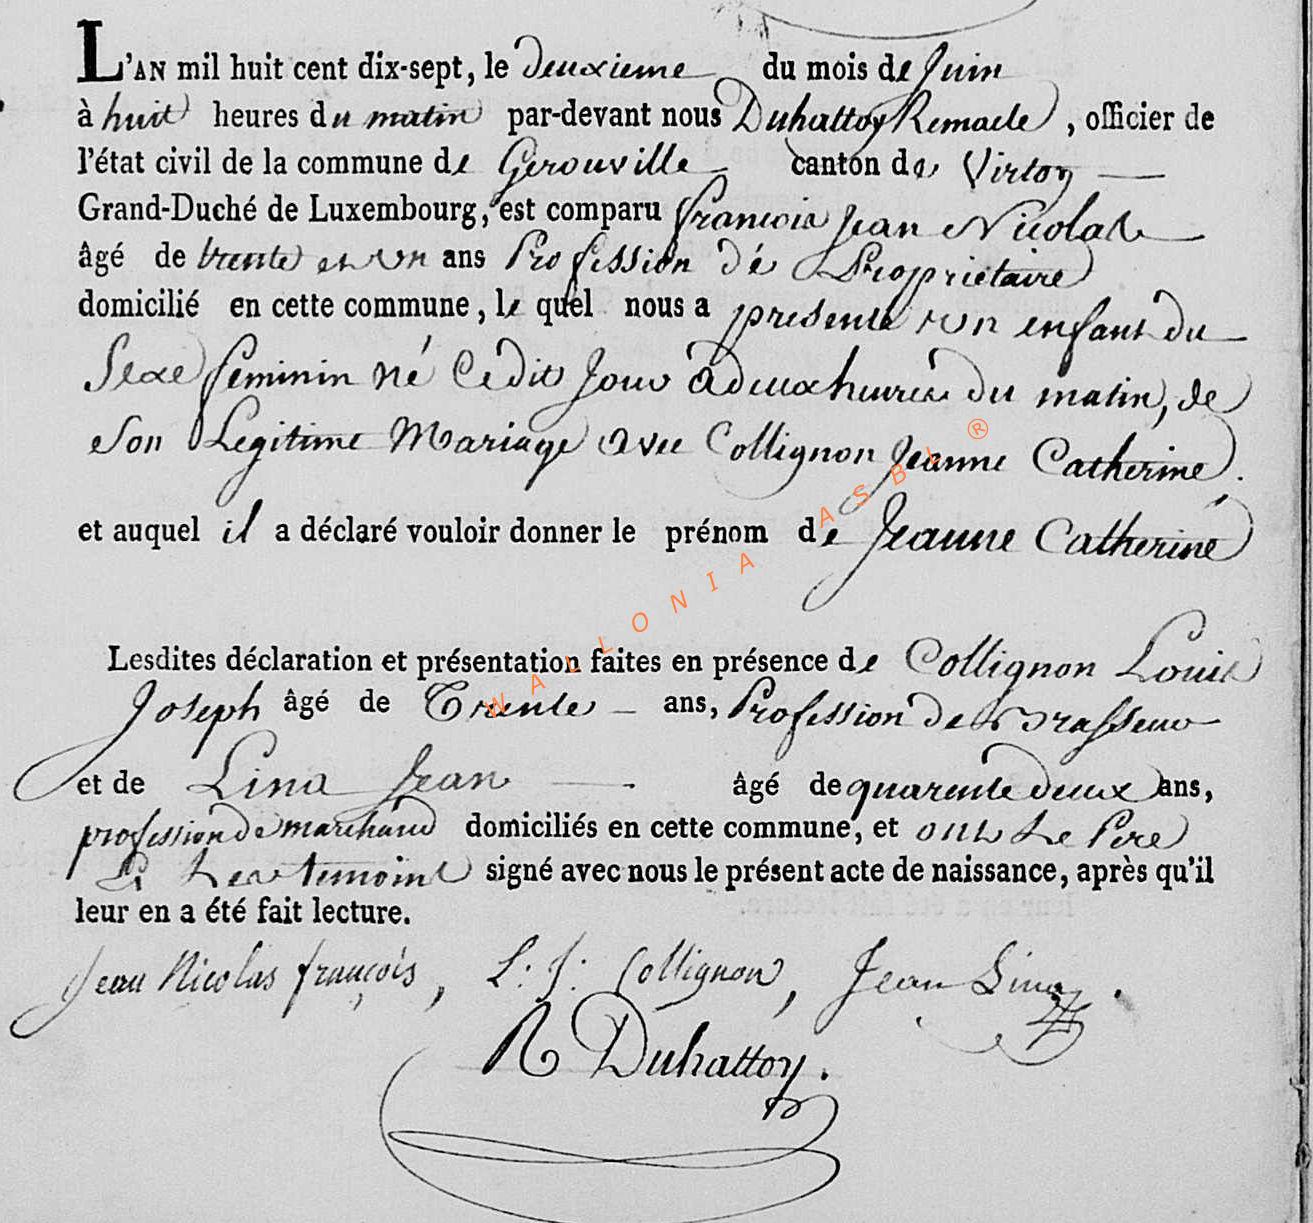 L'AN mil huit cent dix-sept, le deuxieme du mois de Juin
à huit heures du matin par-devant nous Duhattoy Remacle, officier de
l'état civil de la commune de Gerouville canton de Virton
Grand-Duché de Luxembourg, est comparu francois Jean Nicolas
âgé de trente et un ans Profession dé Proprietaire
domicilié en cette commune, le quel nous a presenté un enfant du
Sexe feminin né Cedit Jour à deux heures du matin, de
Son Legitime Mariage avec Collignon Jeanne Catherine.
et auquel il a déclaré vouloir donner le prénom de Jeanne Catherine
Lesdites déclaration et présentation faites en présence de Collignon Louis
Joseph âgé de Trente ans, Profession de Brasseur
et de Lina Jean âgé de quarente deux ans,
profession de marchand domiciliés en cette commune, et ont Le Pere
et Les temoins signé avec nous le présent acte de naissance, après qu'il
leur en a été fait lecture.
Jean Nicolas françois, L: J: Collignon, Jean Lina.
R Duhattoy.
WALLONIA ASBL ®